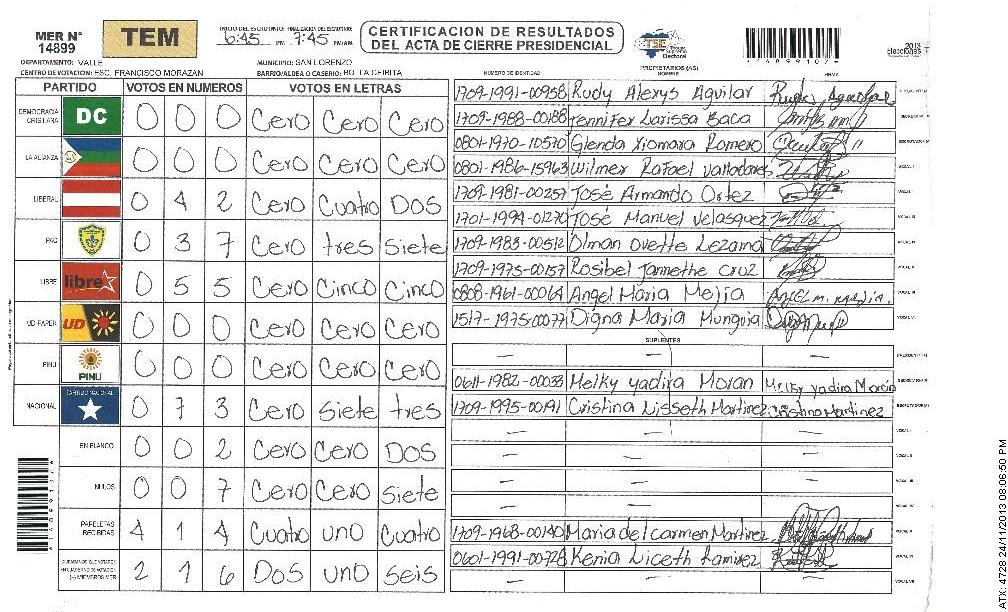 MER N° 14899
TEM
INICIO DEL ESCRUTINIO: 6:45 PM FINALIZACIÓN DEL ESCRUTINIO: 7:45 PM/AM
CERTIFICACIÓN DE RESULTADOS
DEL ACTA DE CIERRE PRESIDENCIAL
TSE Tribunal Supremo Electoral
2013 elecciones
DEPARTAMENTO: VALLE
MUNICIPIO: SAN LORENZO
CENTRO DE VOTACION: ESC. FRANCISCO MORAZAN
BARRIO/ALDEA O CASERIO: BO. LA CEIBITA
PARTIDO VOTOS EN NUMEROS VOTOS EN LETRAS
DEMOCRACIA CRISTIANA DC 0 0 0 Cero Cero Cero
LA ALIANZA 0 0 0 Cero Cero Cero
LIBERAL 0 4 2 Cero Cuatro Dos
PAC 0 3 7 Cero tres Siete
LIBRE libre 0 5 5 Cero Cinco Cinco
UD-FAPER UD 0 0 0 Cero Cero Cero
PINU PINU 0 0 0 Cero Cero Cero
NACIONAL PARTIDO NACIONAL 0 7 3 Cero Siete tres
EN BLANCO 0 0 2 Cero Cero Dos
NULOS 0 0 7 Cero Cero Siete
PAPELETAS RECIBIDAS 4 1 4 Cuatro uno Cuatro
2 1 6 Dos uno seis
NUMERO DE IDENTIDAD PROPIETARIOS (AS) NOMBRE FIRMA
1709-1991-00958 Rudy Alexys Aguilar
1709-1988-00188 Jennifer Larissa Baca
0801-1970-10570 Glenda Xiomara Romero
0801-1986-15963 Wilmer Rafael Valladares
1709-1981-00257 José Armando Ortez
1701-1999-01270 José Manuel Velasquez
1709-1983-00512 Olman Ovette Lezama
1709-1975-00157 Rosibel Jannethe Cruz
0808-1961-00064 Angel Maria Mejia
1517-1975-00077 Digna Maria Munguia
SUPLENTES
— — —
0611-1982-00033 Melky yadira Moran Melky yadira Moran
1709-1995-00191 Cristina Lisseth Martinez Cristina Martinez
— — —
— — —
— — —
— — —
1709-1968-00140 Maria del carmen Martinez
0601-1991-00728 Kenia Liceth Ramirez
— — —
ATX: 4728 24/11/2013 08:06:50 PM